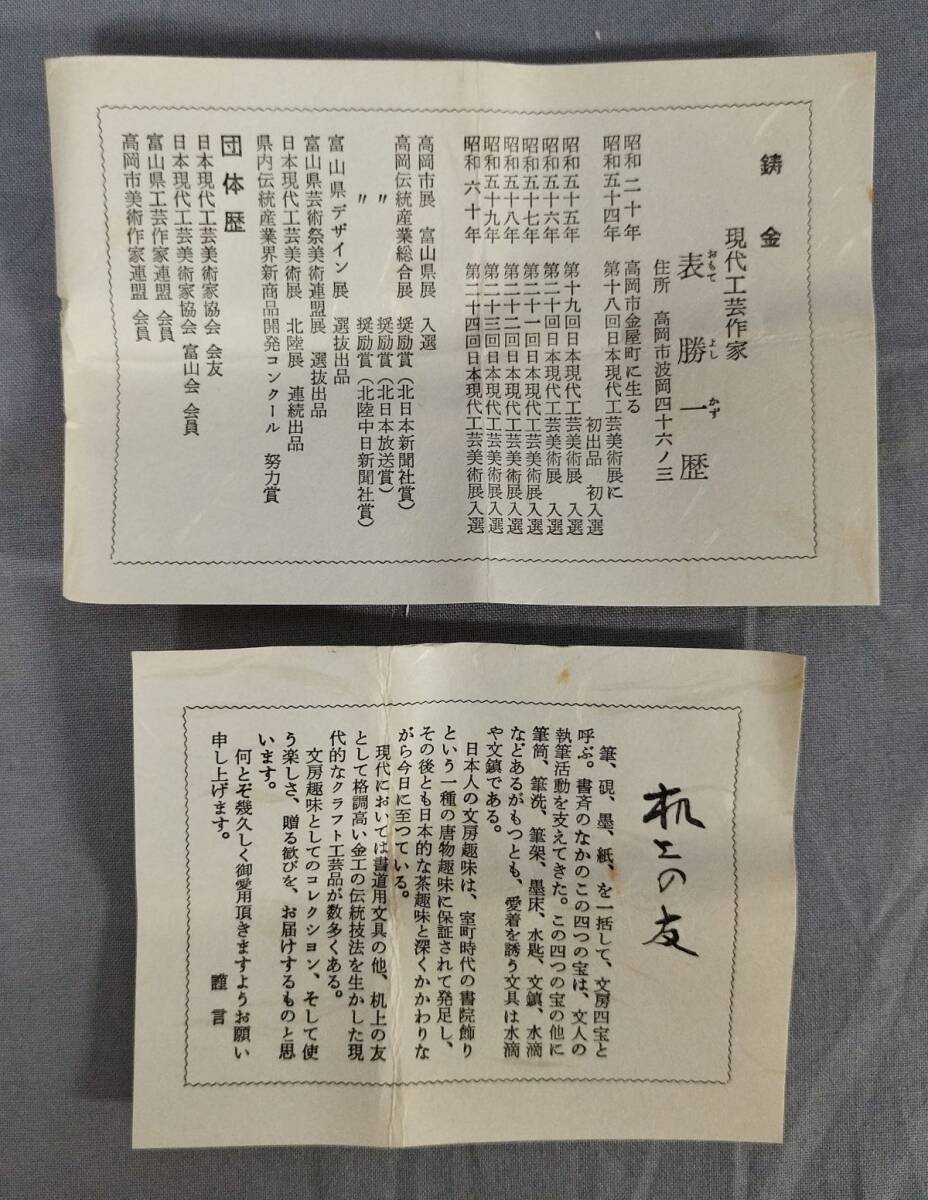 鋳金
現代工芸作家
表勝一歴
おもて よし かず
住所 高岡市波岡四十六ノ三
昭和二十年 高岡市金屋町に生る
昭和五十四年 第十八回日本現代工芸美術展に
初出品 初入選
昭和五十五年 第十九回日本現代工芸美術展 入選
昭和五十六年 第二十回日本現代工芸美術展 入選
昭和五十七年 第二十一回日本現代工芸美術展入選
昭和五十八年 第二十二回日本現代工芸美術展入選
昭和五十九年 第二十三回日本現代工芸美術展入選
昭和六十年 第二十四回日本現代工芸美術展入選
高岡市展 富山県展 入選
高岡伝統産業総合展 奨励賞(北日本新聞社賞)
〃 奨励賞(北日本放送賞)
〃 奨励賞(北陸中日新聞社賞)
富山県デザイン展 選抜出品
富山県芸術祭美術連盟展 選抜出品
日本現代工芸美術展 北陸展 連続出品
県内伝統産業界新商品開発コンクール 努力賞
団体歴
日本現代工芸美術家協会 会友
日本現代工芸美術家協会 富山会 会員
富山県工芸作家連盟 会員
高岡市美術作家連盟 会員
机上の友
筆、硯、墨、紙、を一括して、文房四宝と
呼ぶ。書斉のなかのこの四つの宝は、文人の
執筆活動を支えてきた。この四つの宝の他に
筆筒、筆洗、筆架、墨床、水匙、文鎮、水滴
などあるがもつとも、愛着を誘う文具は水滴
や文鎮である。
日本人の文房趣味は、室町時代の書院飾り
という一種の唐物趣味に保証されて発足し、
その後とも日本的な茶趣味と深くかかわりな
がら今日に至つている。
現代においては書道用文具の他、机上の友
として格調高い金工の伝統技法を生かした現
代的なクラフト工芸品が数多くある。
文房趣味としてのコレクション、そして使
う楽しさ、贈る歓びを、お届けするものと思
います。
何とぞ幾久しく御愛用頂きますようお願い
申し上げます。
謹言